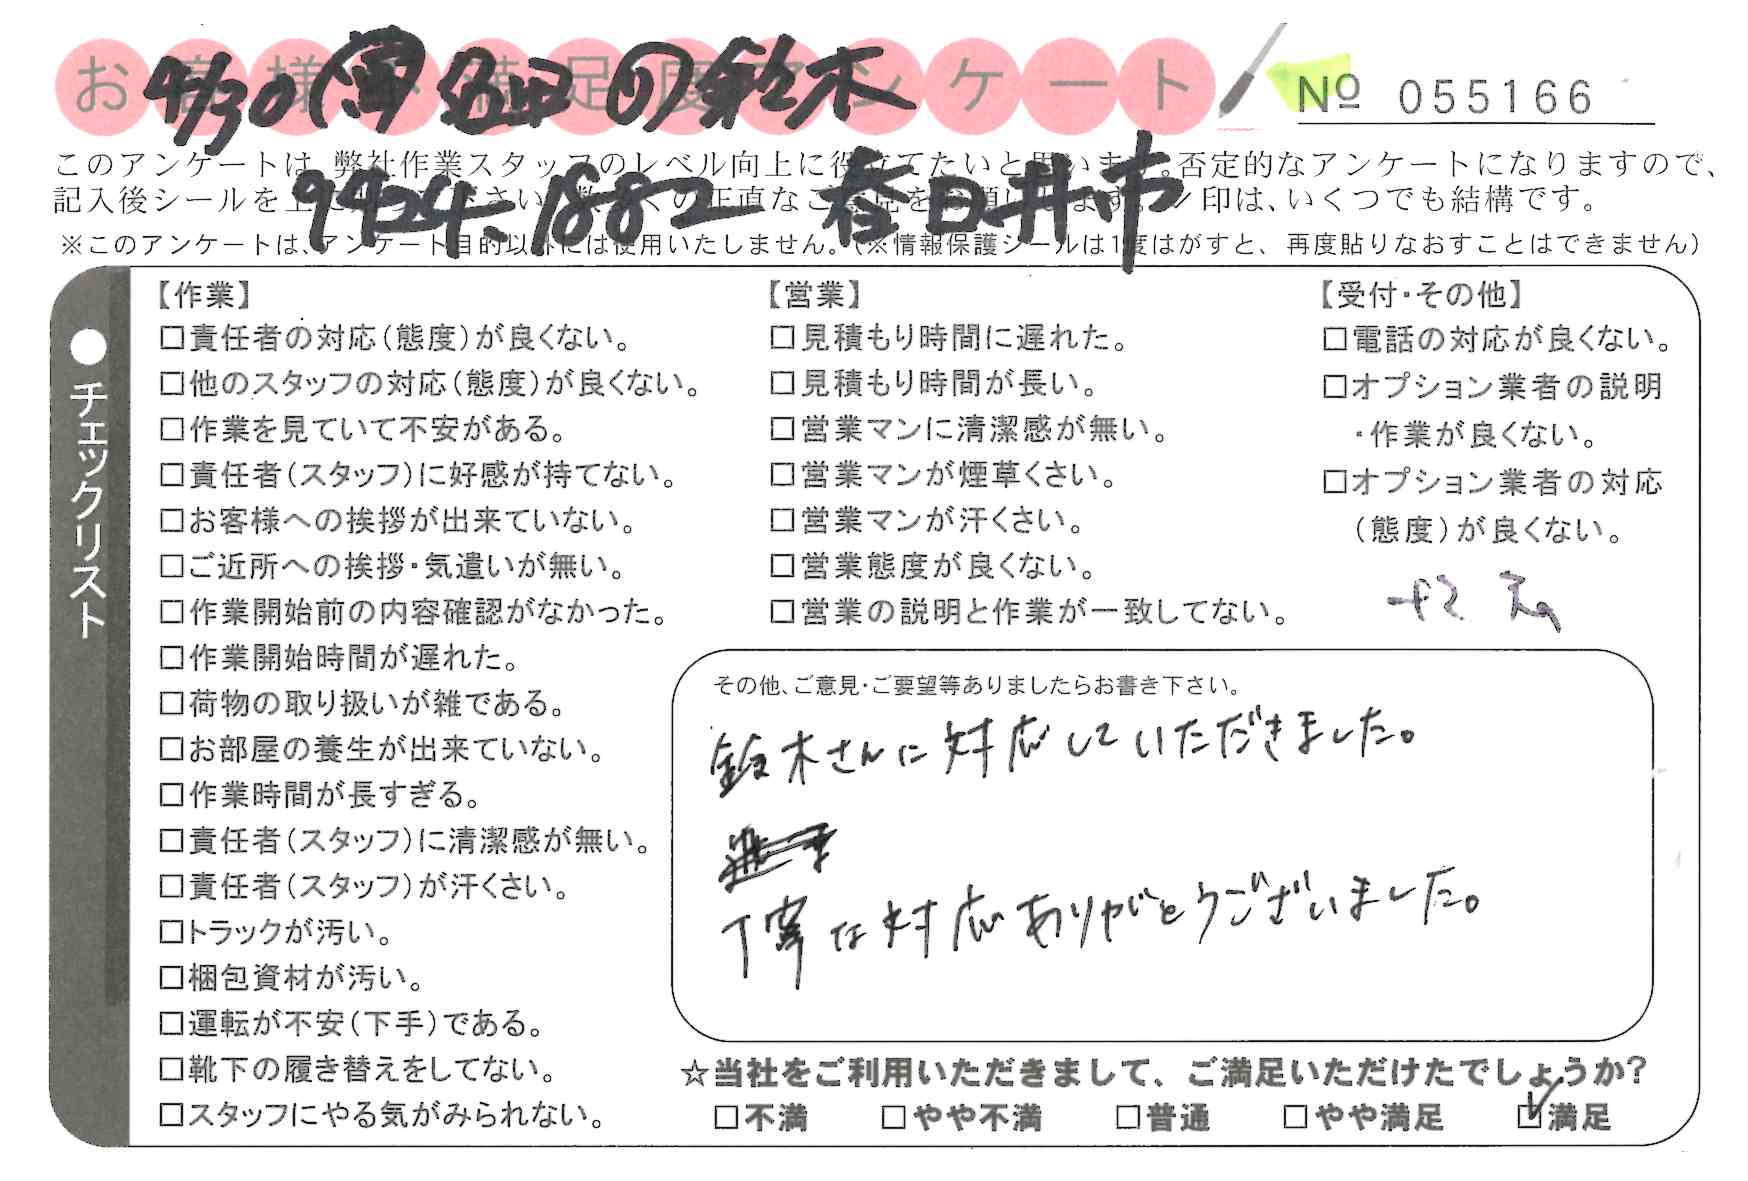 お客様ご満足度アンケート
4/30
鈴木
No 055166
9424、1882 春日井市
このアンケートは、弊社作業スタッフのレベル向上に役立てたいと思います。否定的なアンケートになりますので、
記入後シールを さい 数 くの正直なご意見をお願いします。✓印は、いくつでも結構です。
※このアンケートは、アンケート目的以外には使用いたしません。（※情報保護シールは1度はがすと、再度貼りなおすことはできません）
●チェックリスト
【作業】
□責任者の対応（態度）が良くない。
□他のスタッフの対応（態度）が良くない。
□作業を見ていて不安がある。
□責任者（スタッフ）に好感が持てない。
□お客様への挨拶が出来ていない。
□ご近所への挨拶・気遣いが無い。
□作業開始前の内容確認がなかった。
□作業開始時間が遅れた。
□荷物の取り扱いが雑である。
□お部屋の養生が出来ていない。
□作業時間が長すぎる。
□責任者（スタッフ）に清潔感が無い。
□責任者（スタッフ）が汗くさい。
□トラックが汚い。
□梱包資材が汚い。
□運転が不安（下手）である。
□靴下の履き替えをしてない。
□スタッフにやる気がみられない。
【営業】
□見積もり時間に遅れた。
□見積もり時間が長い。
□営業マンに清潔感が無い。
□営業マンが煙草くさい。
□営業マンが汗くさい。
□営業態度が良くない。
□営業の説明と作業が一致してない。
【受付・その他】
□電話の対応が良くない。
□オプション業者の説明
・作業が良くない。
□オプション業者の対応
（態度）が良くない。
その他、ご意見・ご要望等ありましたらお書き下さい。
鈴木さんに対応していただきました。
丁寧な対応ありがとうございました。
☆当社をご利用いただきまして、ご満足いただけたでしょうか?
□不満 □やや不満 □普通 □やや満足 ☑満足